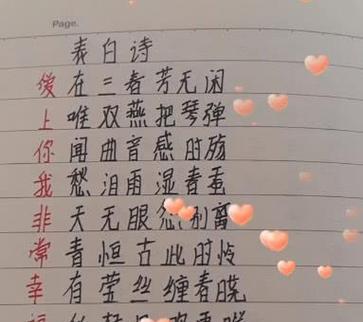 Page.
表白诗
爱在三春芳无闲
上唯双燕把琴弹
你闻曲音感时殇
我愁泪雨湿青蛋
非天无眼怨别离
常青恒古此时怜
幸有莹丝缠春晓